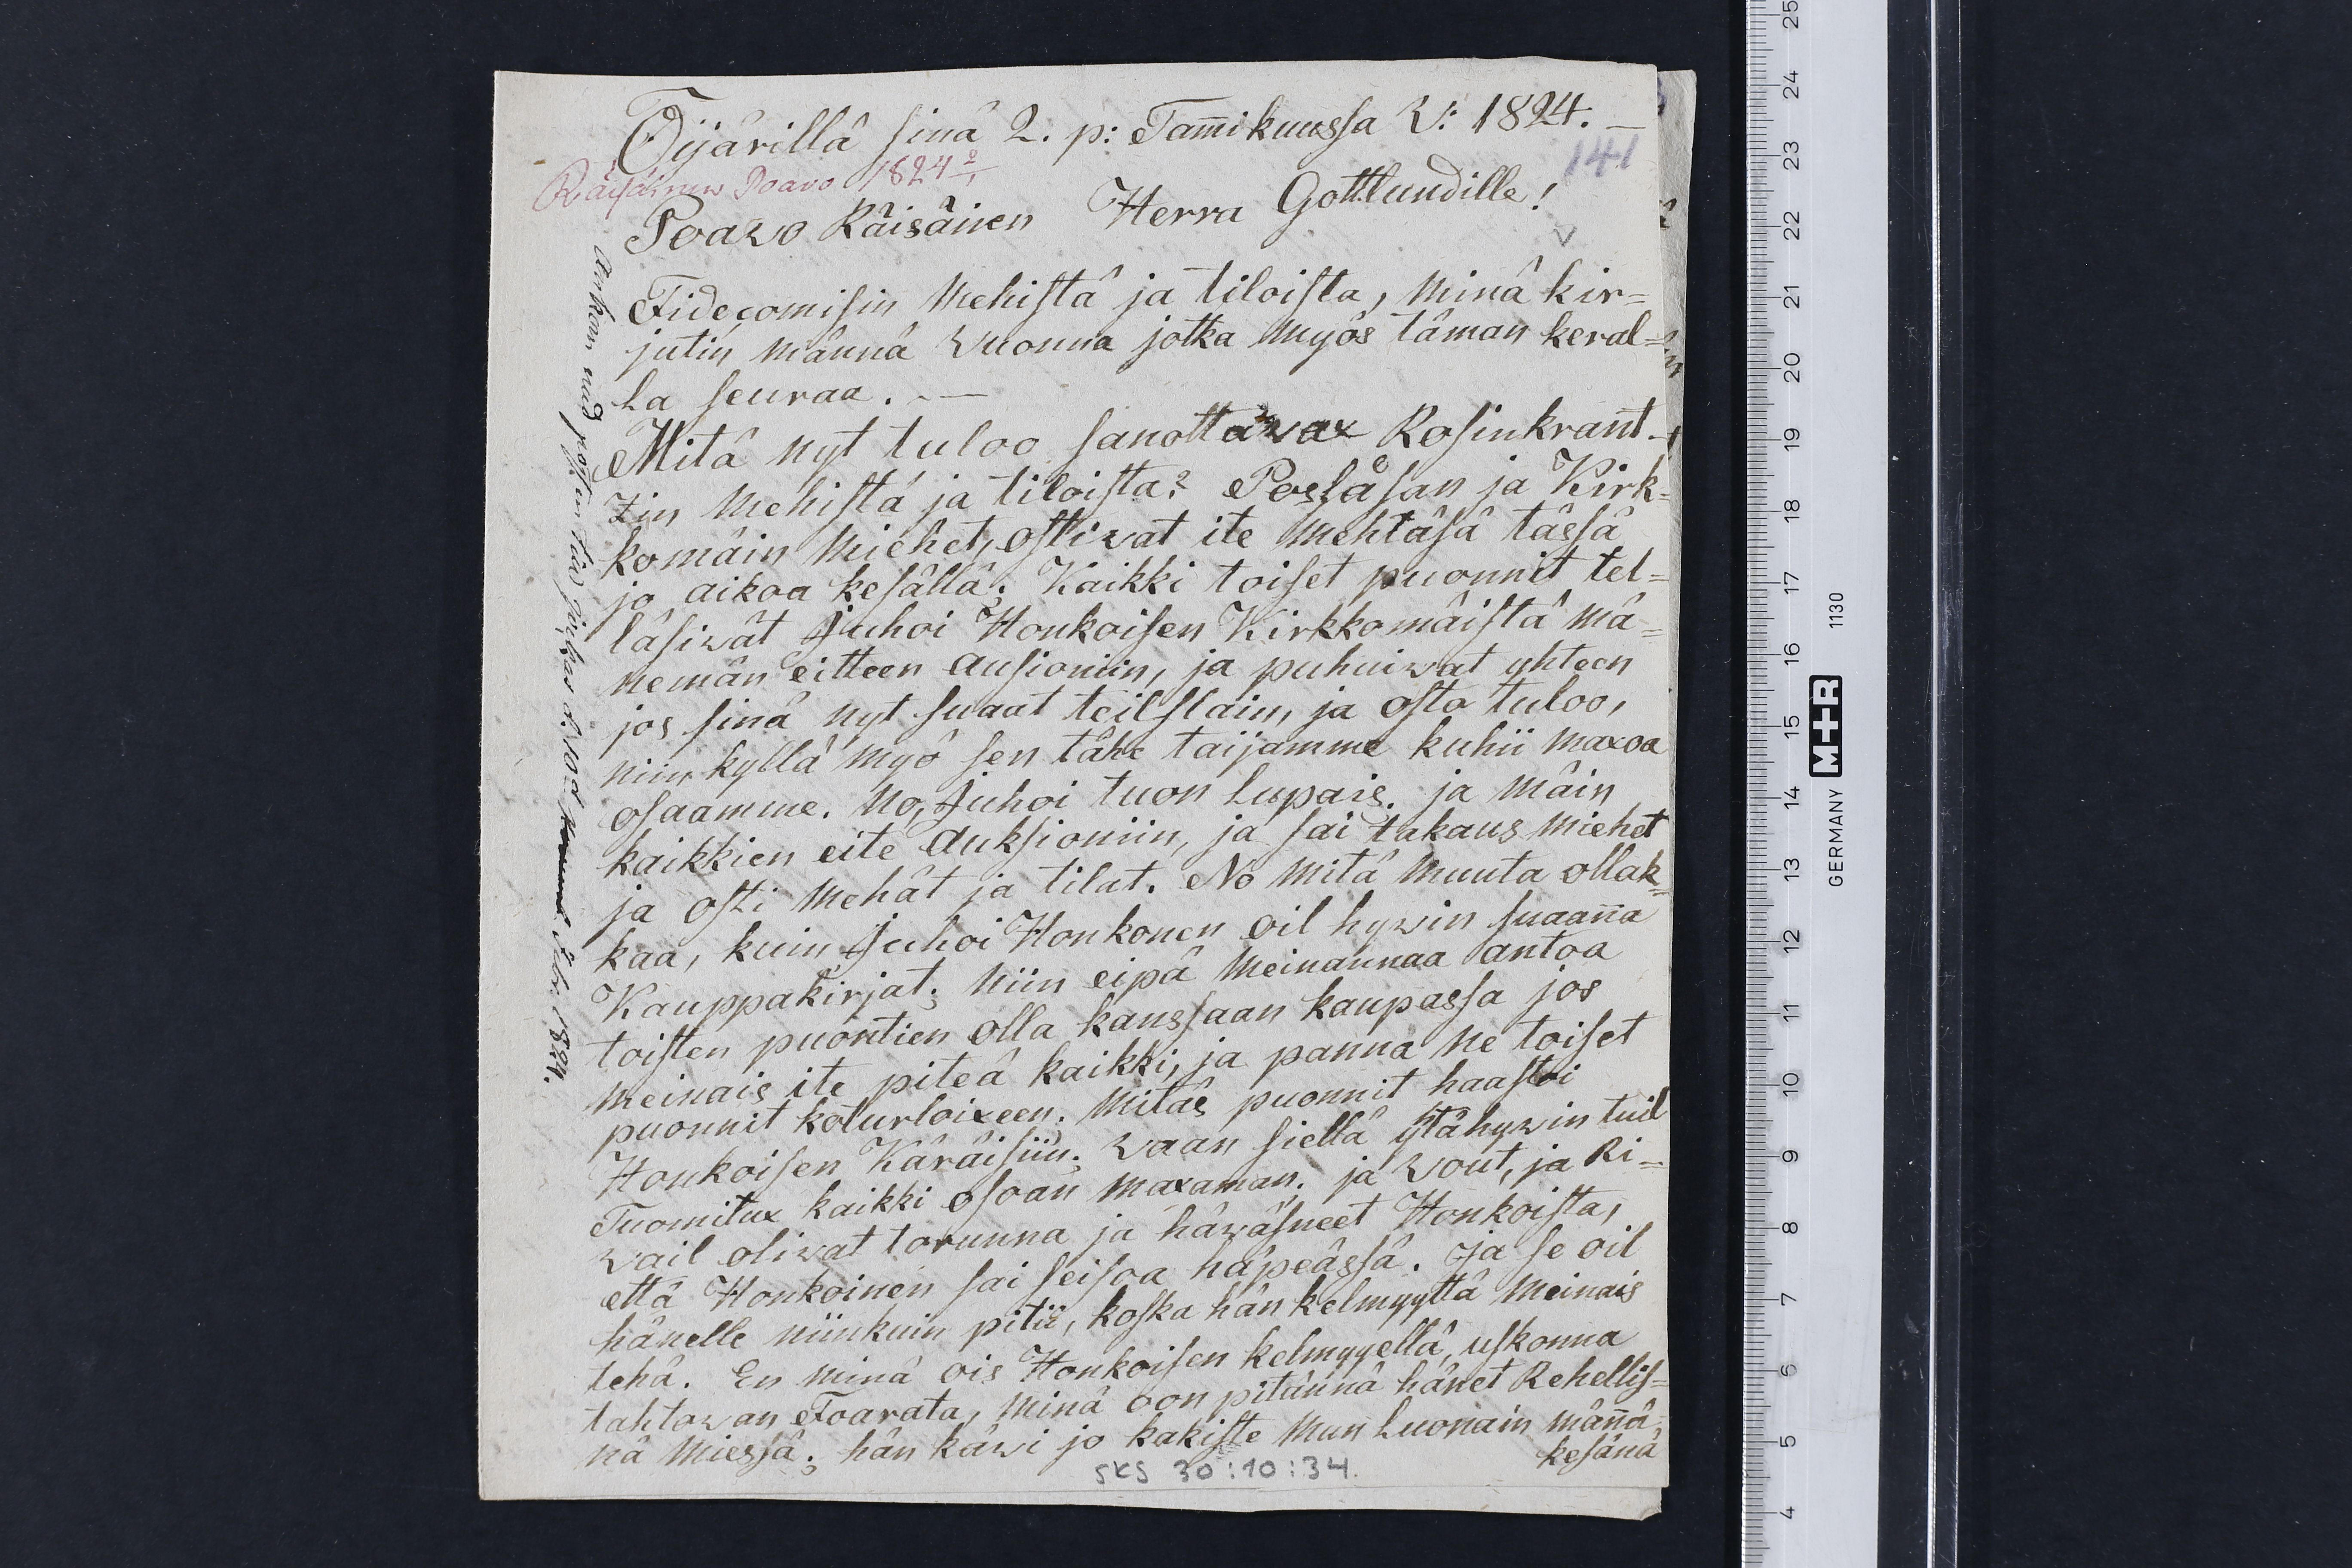 Öijärillä sinä 2. p: Tam̄ikuussa V: 1824. —
141
Räisäinen Poavo 1824 2/1
Poavo Räisäinen Herra Gottlundille!
Fidecomisin Mehistä ja tiloista, minä kir=
jutin männä vuonna jotka myös täman keral=
la seuraa. —
Mitä nyt tuloo sanottavax Rosinkrant=
zin Mehistä ja tiloista? Poslåsan ja Kirk=
komäin Miehet, ostivat ite Mehtäsä tässä
jo aikoa kesällä; Kaikki toiset puonnit tel=
läsivät Juhoi Honkoisen Kirkkomäistä mä=
nemän eitteen Ausioniin, ja puhuivat yhteen
jos sinä nyt suaat teilslain, ja osta tuloo,
niin kyllä myö sen tähe taijamme kuhii maxoa
osaamme. No, Juhoi tuon lupais. ja mäin
kaikkien eite Auksioniin, ja sai takaus miehet
ja osti Mehät ja tilat. No mitä muuta ollak=
kaa, kuin Juhoi Honkonen oil hyvin suaan̄a
Kauppakirjat; niin eipä meinannaa antoa
toisten puontien olla kanssaan kaupassa jos
meinais ite piteä kaikki, ja panna ne toiset
puonnit koturloixeen. Mitäs puonnit haastoi
Honkoisen Käräisiin; vaan siellä ytähyvin tuil
Tuomitux kaikki osoan maxaman. ja vout, ja Ri=
vail olivat torunna ja häväsneet Honkoista,
että Honkoinen sai seisoa häpeässä. Ja se oil
hänelle niinkuin pitii, koska hän kelmyyttä meinais
tehä. En minä ois Honkoisen kelmyyellä, uskonna
tahtovan Foarata, minä oon pitännä hänet Rehellis=
nä miessä; hän kävi jo kakiste mun luonain män̄ä
kesänä
SKS 30:10:34.
Ankom med posten 1824.
25
24
23
22
21
20
19
18
17
16
15
14
13
12
11
10
9
8
7
6
5
4
GERMANY M+R 1130